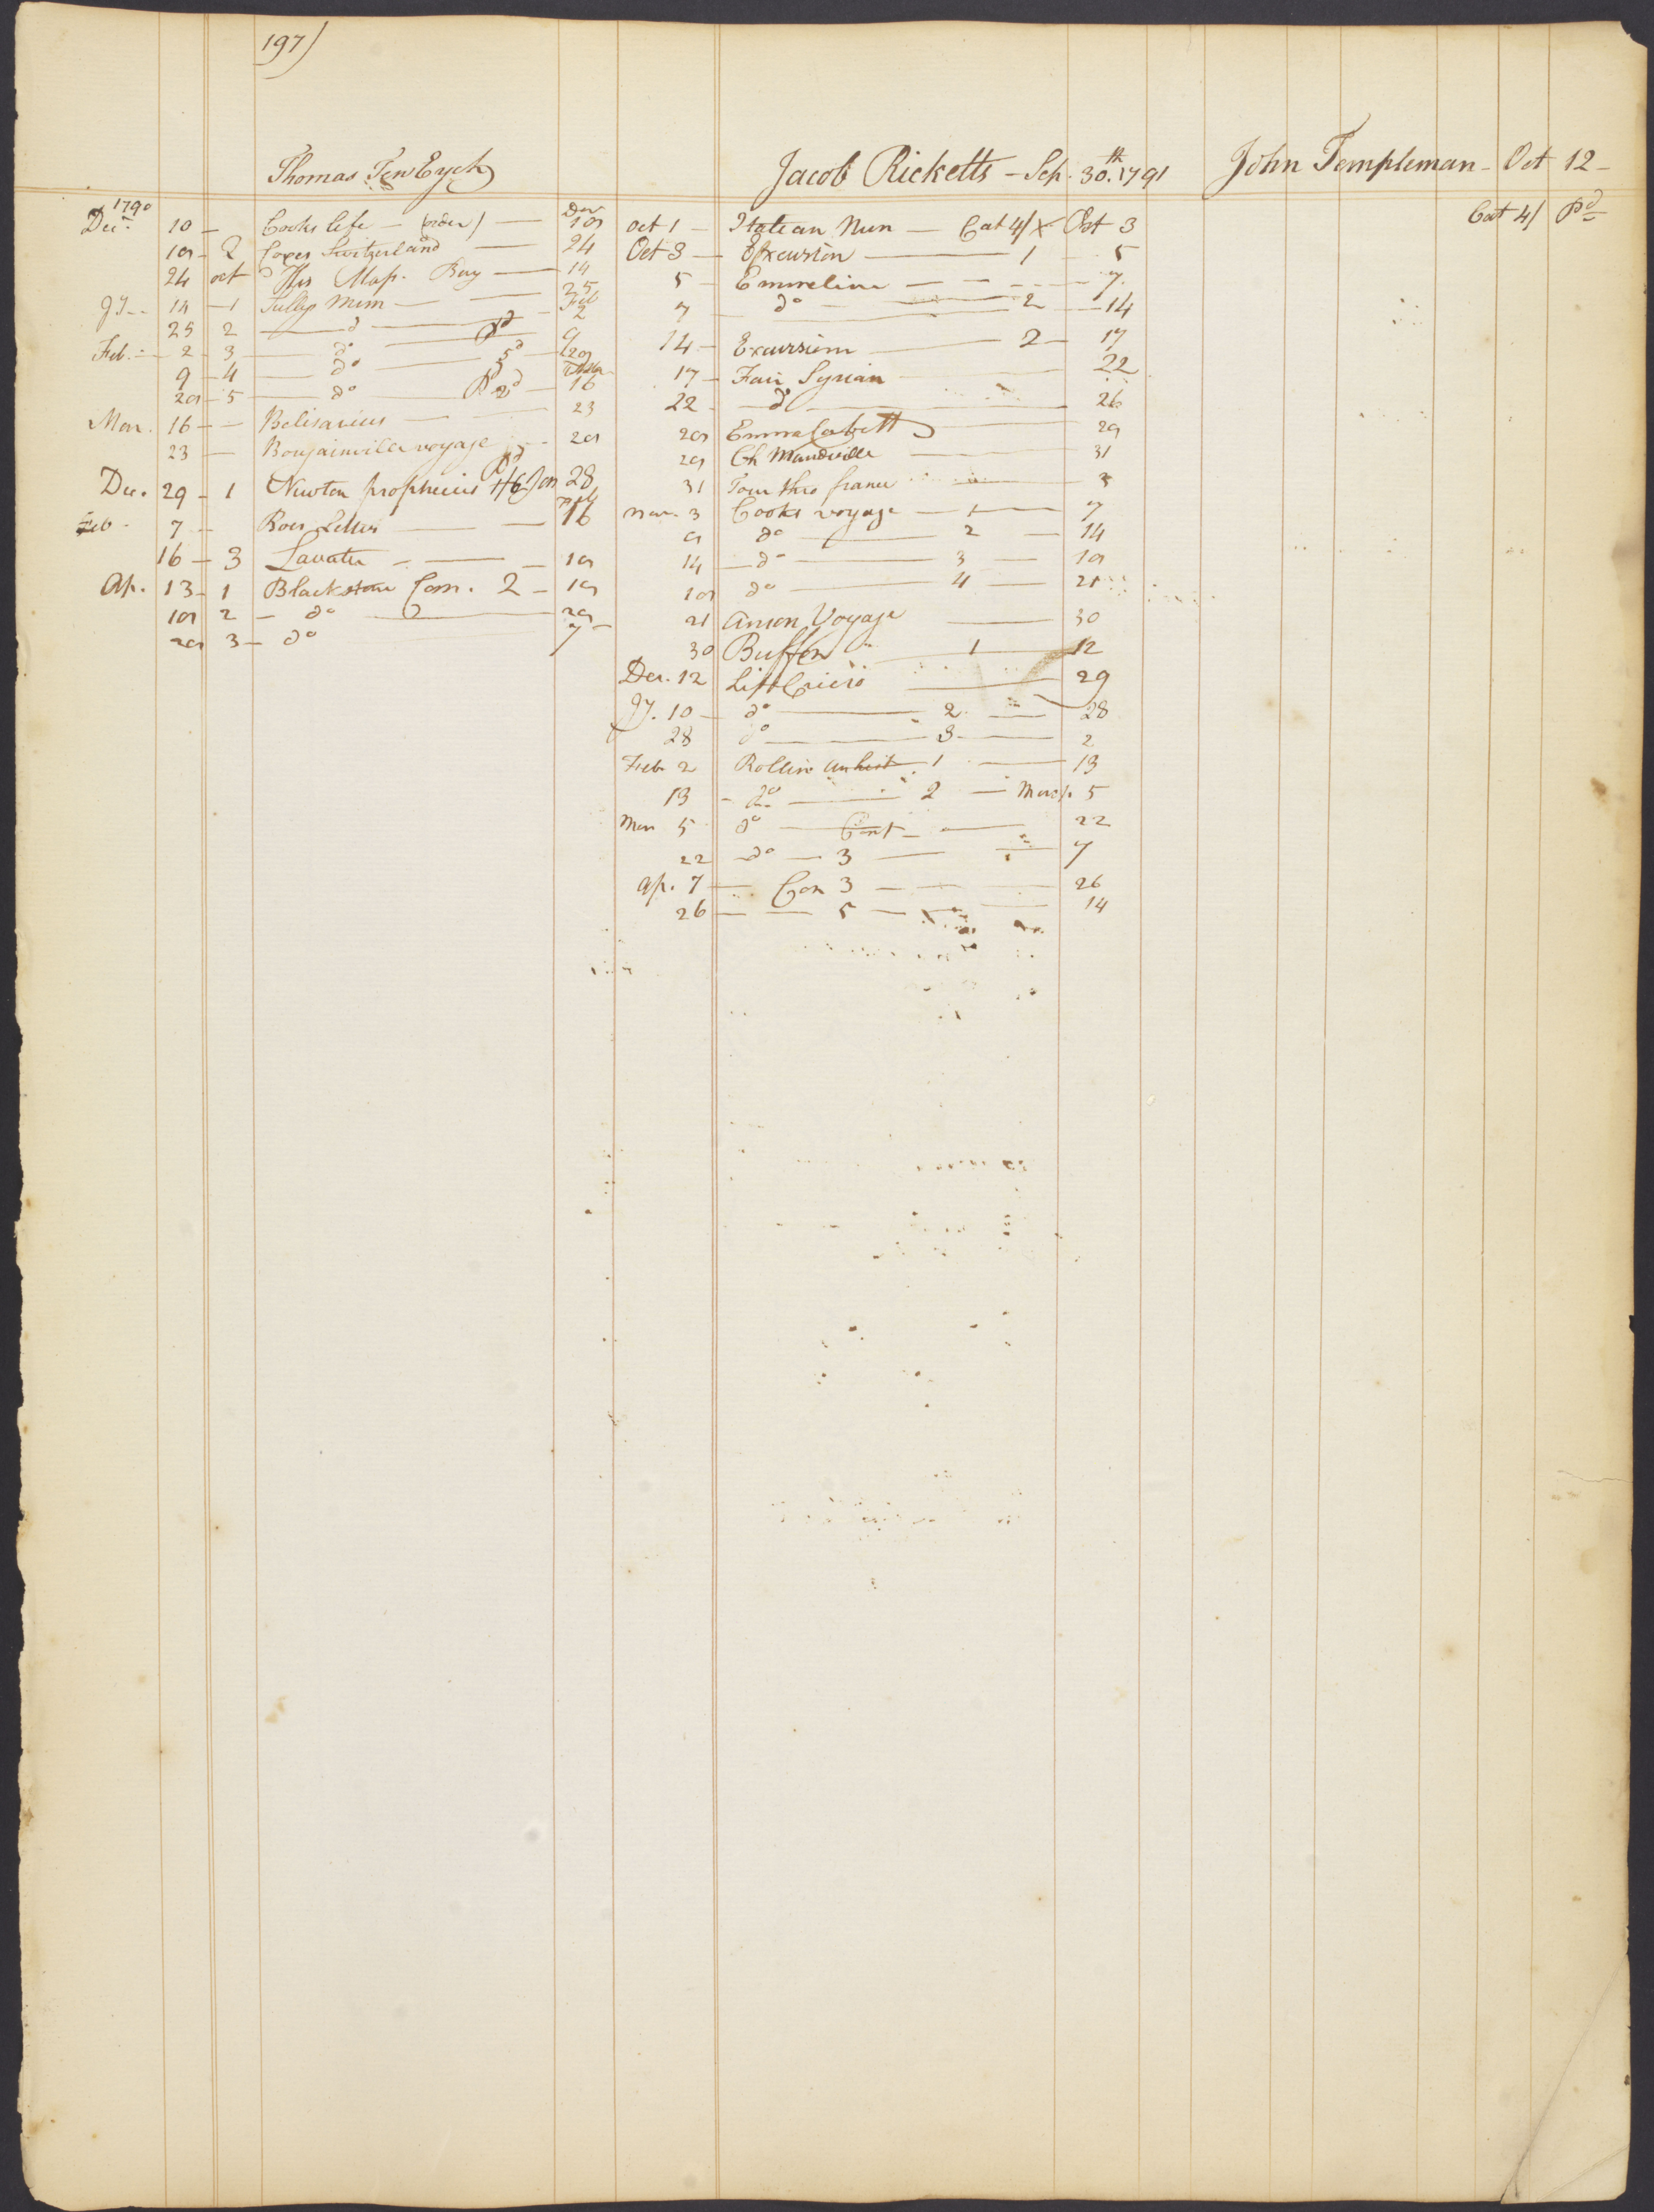 197)
Thomas Ten Eyck
1790
Dec. 10 — Cooks life — (oder) — Dec 19
19 - 2 Coxes Switzerland — 24
24 oct His Mass. Bay — 14
Jy — 14 — 1 Sullys Mem — 25
25 2 — do — Pd Feb 2
Feb. — 2 - 3 — do — 9
9 - 4 — do — 5d 29
29 - 5 — do — Pd 2d — 16
Mar. 16 — Belisarius — 23
23 — Boujainville voyage — 29
Pd
Dec. 29 - 1 Newton prophecies 4/6 Jan 28
Feb - 7 — Roes Letters — 16
16 - 3 Lavater — 19
Ap. 13 - 1 Blackstone Com. 2 — 19
19 2 — do 2 — 29
29 3 — do 7 —
Jacob Ricketts — Sep. 30.th 1791
Oct 1 — Italean Nun — Cat 4/ x Oct 3
Oct 3 — Excursion — 1 5
5 — Emmeline — 7.
7 — do — 2 — 14
14 — Excursion — 2 — 17
17 — Fair Syrian 22
22 — do — 26
29 Emma Corbett 29
29 Ch Mandville 31
31 Tour thro france — 3
Nov. 3 Cooks voyage — 1 — 7
9 do — 2 — 14
14 — do — 3 — 19
19 do — 4 — 21
21 Anson Voyage — 30
30 Buffon — 1 — 12
Dec. 12 Life Cicero — 29
Jy. 10 — do — 2 — 28
28 do — 3 — 2
Feb 2 Rollin an hist 1 — 13
13 — do — 2 — March. 5
Mar 5 do — Cont — 22
22 — do — 3 — 7
Ap. 7 — Con 3 — 26
26 — 5 — 14
John Templeman — Oct 12 —
Cat 4/ Pd